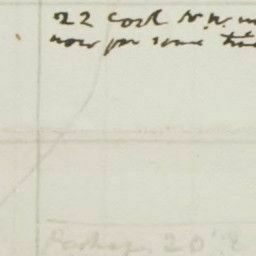 22 Cook N.W.
now for some
Perhaps 20